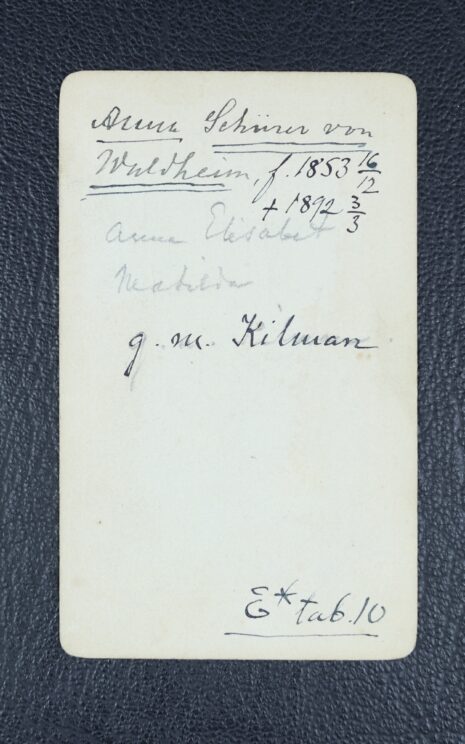 Anna Schürer von
Waldheim, f. 1853 16/12
+ 1892 3/3
Anna Elisabet
Matilda
g. m. Kilman
E* tab. 10